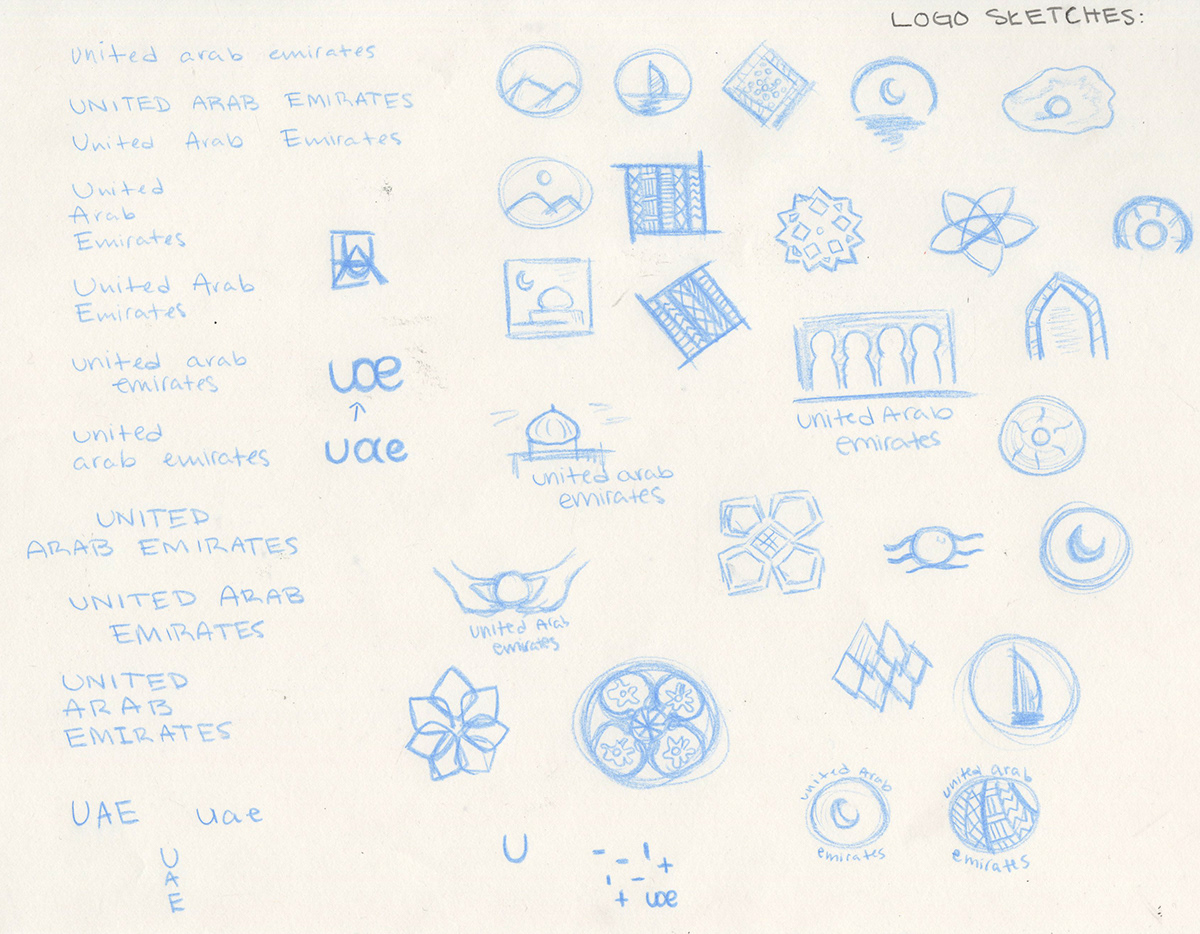 LOGO SKETCHES:
united arab emirates
UNITED ARAB EMIRATES
United Arab Emirates
United
Arab
Emirates
United Arab
Emirates
united arab
emirates
united
arab emirates
UNITED
ARAB EMIRATES
UNITED ARAB
EMIRATES
UNITED
ARAB
EMIRATES
UAE
uae
U
A
E
uae
uae
united arab
emirates
united Arab
emirates
united Arab
emirates
united Arab
emirates
united arab
emirates
U
uae